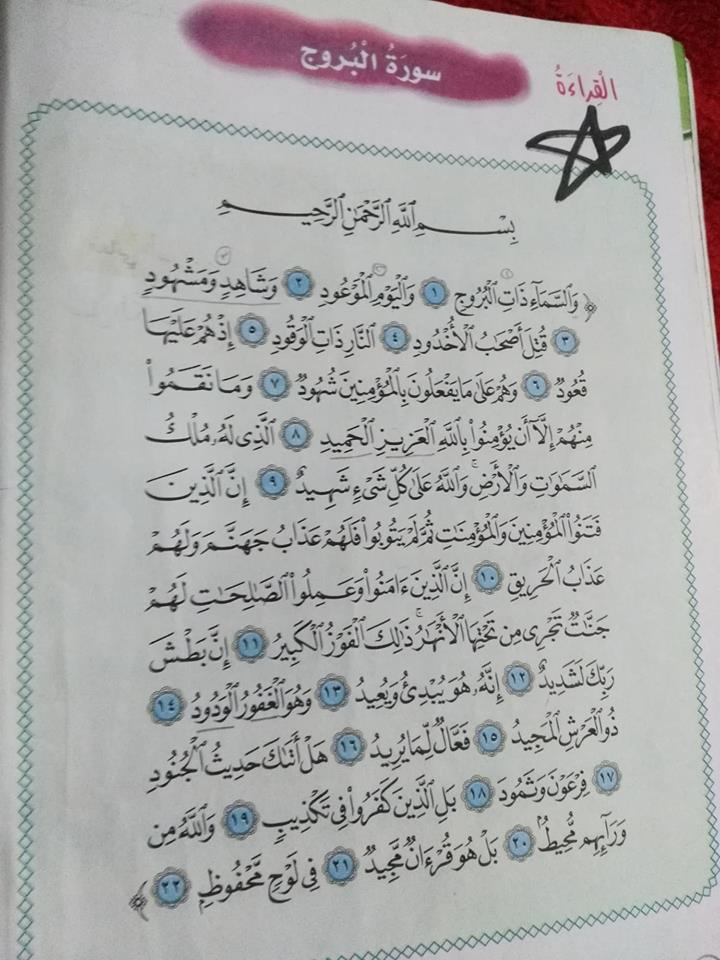 سورة الْبُروج
الْقِراءَةُ
بِسْمِ اللَّهِ الرَّحْمَٰنِ الرَّحِيمِ
﴿ وَالسَّمَآءِ ذَاتِ الْبُرُوجِ ١ وَالْيَوْمِ الْمَوْعُودِ ٢ وَشَاهِدٍ وَمَشْهُودٍ
٣ قُتِلَ أَصْحَابُ الْأُخْدُودِ ٤ النَّارِ ذَاتِ الْوَقُودِ ٥ إِذْ هُمْ عَلَيْهَا
قُعُودٌ ٦ وَهُمْ عَلَىٰ مَا يَفْعَلُونَ بِالْمُؤْمِنِينَ شُهُودٌ ٧ وَمَا نَقَمُوا
مِنْهُمْ إِلَّا أَن يُؤْمِنُوا بِاللَّهِ الْعَزِيزِ الْحَمِيدِ ٨ الَّذِي لَهُ مُلْكُ
السَّمَاوَاتِ وَالْأَرْضِ ۚ وَاللَّهُ عَلَىٰ كُلِّ شَيْءٍ شَهِيدٌ ٩ إِنَّ الَّذِينَ
فَتَنُوا الْمُؤْمِنِينَ وَالْمُؤْمِنَاتِ ثُمَّ لَمْ يَتُوبُوا فَلَهُمْ عَذَابُ جَهَنَّمَ وَلَهُمْ
عَذَابُ الْحَرِيقِ ١٠ إِنَّ الَّذِينَ ءَامَنُوا وَعَمِلُوا الصَّالِحَاتِ لَهُمْ
جَنَّاتٌ تَجْرِي مِن تَحْتِهَا الْأَنْهَارُ ۚ ذَٰلِكَ الْفَوْزُ الْكَبِيرُ ١١ إِنَّ بَطْشَ
رَبِّكَ لَشَدِيدٌ ١٢ إِنَّهُ هُوَ يُبْدِئُ وَيُعِيدُ ١٣ وَهُوَ الْغَفُورُ الْوَدُودُ ١٤
ذُو الْعَرْشِ الْمَجِيدُ ١٥ فَعَّالٌ لِّمَا يُرِيدُ ١٦ هَلْ أَتَىٰكَ حَدِيثُ الْجُنُودِ
١٧ فِرْعَوْنَ وَثَمُودَ ١٨ بَلِ الَّذِينَ كَفَرُوا فِي تَكْذِيبٍ ١٩ وَاللَّهُ مِن
وَرَآئِهِم مُّحِيطٌ ٢٠ بَلْ هُوَ قُرْءَانٌ مَّجِيدٌ ٢١ فِي لَوْحٍ مَّحْفُوظٍ ٢٢ ﴾